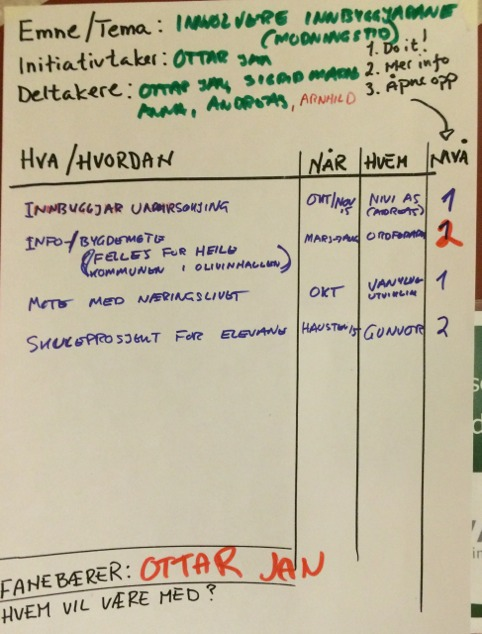 Emne/Tema: INVOLVERE INNBYGGJARANE
(MODNINGSTID)
Initiativtaker: OTTAR JAN
Deltakere: OTTAR JAN, SIGRID MARIE
ANNA, ANDREAS, ARNHILD
1. Do it!
2. Mer info
3. Åpne opp
HVA/HVORDAN NÅR HVEM NIVÅ
INNBYGGJAR UNDERSØKJING OKT/NOV 15 NIVI AS (ANDREAS) 1
INFO-/BYGDEMØTE MARS- ORDFØRAR 2
(FELLES FOR HEILE
KOMMUNEN I OLIVINHALLEN)
MØTE MED NÆRINGSLIVET OKT VANYLVEN UTVIKLING 1
SKULEPROSJEKT FOR ELEVANE HAUSTEN 15 GUNVOR 2
FANEBÆRER: OTTAR JAN
HVEM VIL VÆRE MED?